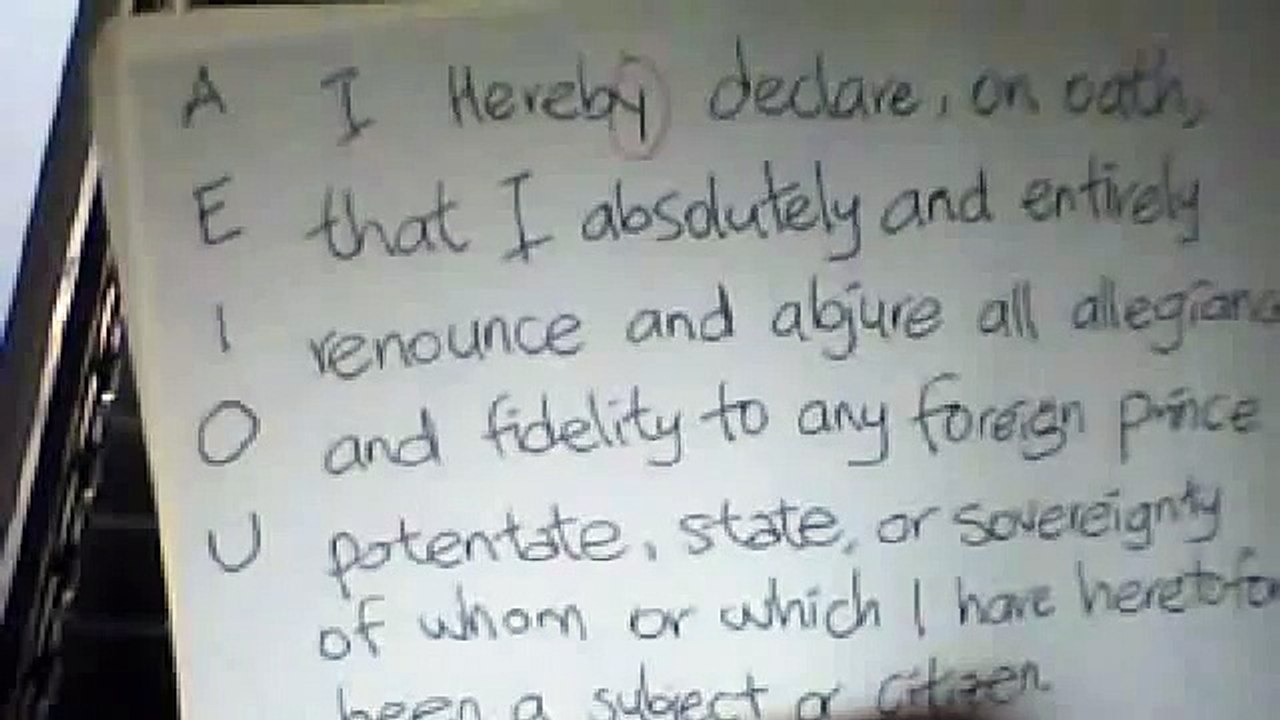 A I Hereby declare, on oath,
E that I absolutely and entirely
I renounce and abjure all allegianc
O and fidelity to any foreign prince
U potentate, state, or sovereignty
of whom or which I have heretofo
been a subject or citizen